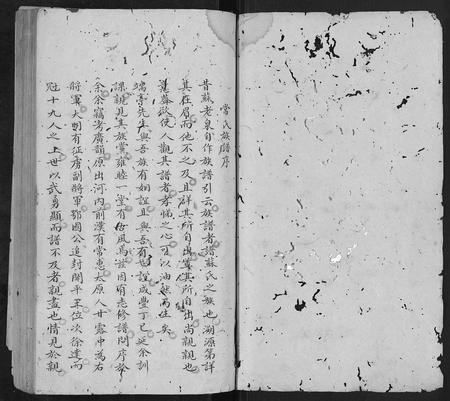 常氏族譜序
昔蘇老泉自作族譜引云族譜者譜蘇氏之族也溯源第詳
其在眉而他不之及且詳其所自出尊其所自出尚親親也
欲使人觀其譜者孝悌之心可以油然而生矣
端亭先生與吾族有姻誼且與吾有世誼咸豐丁巳延余訓
課親見其族黨雍睦一堂有古風焉茲因有志修譜問序於
余余竊考廣韻原出河內前漢有常惠太原人甘露中為右
將軍大明有征虜副將軍鄂國公追封開平王位次徐達而
冠十九人之上世以武勇顯而譜不及者親盡也情見於親